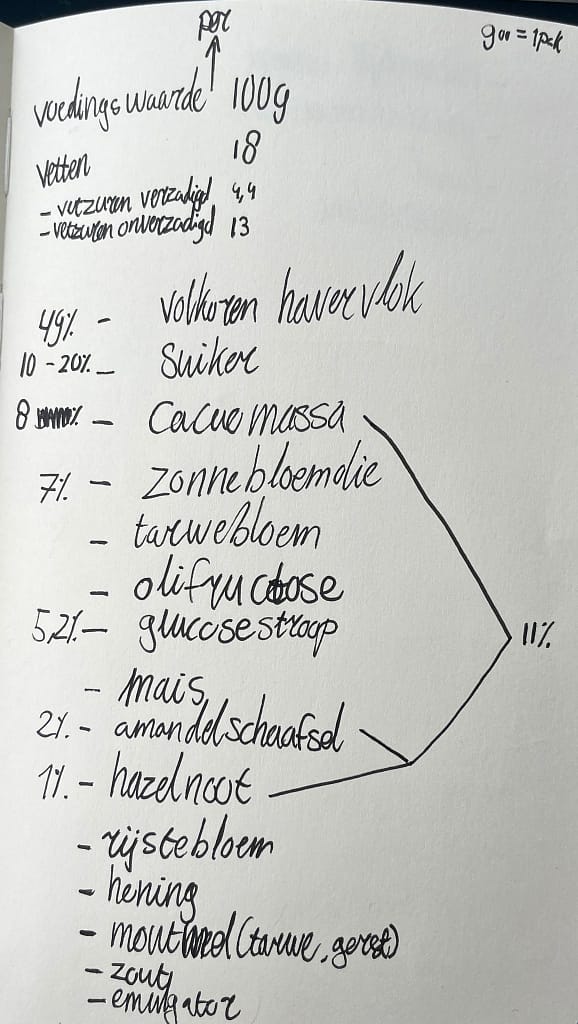 per
900 = 1pck
voedingswaarde 100g
vetten 18
- vetzuren verzadigd 4,4
- vetzuren onverzadigd 13
49% - volkoren havervlok
10 - 20% - Suiker
8 % - Cacaomassa
7% - zonnebloemolie
- tarwebloem
- olifructose
5,2% - glucosestroop
11%
- mais
2% - amandelschaafsel
1% - hazelnoot
- rijstebloem
- hening
- mout (tarwe, gerst)
- zout
- emulgator